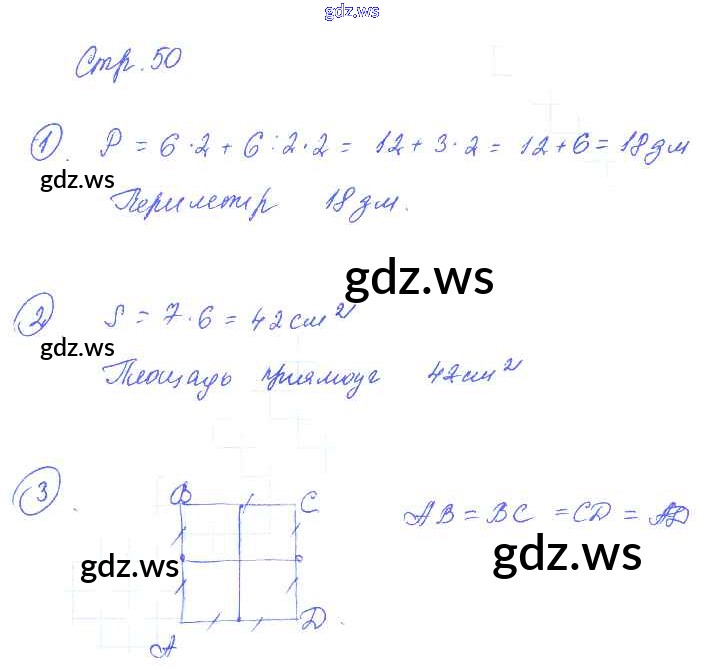 gdz.ws
Стр. 50
1. P = 6 · 2 + 6 : 2 · 2 = 12 + 3 · 2 = 12 + 6 = 18 дм
gdz.ws
Периметр 18 дм.
gdz.ws
2 S = 7 · 6 = 42 см²
gdz.ws
Площадь прямоуг 42 см²
3.
B C
AB = BC = CD = AD
gdz.ws
gdz.ws
A D.